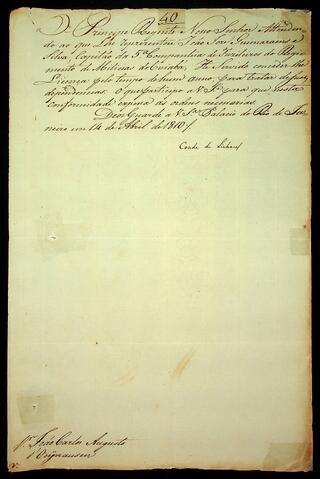 40
O Principe Regente Nosso Senhor Attenden-
do ao que Lhe representou João José Guimaraens e
Silva, Capitão da 5ª Companhia de Fuzileiros do Regi-
mento de Milicias do Cuiabá, He Servido conceder-lhe
Licença pelo tempo de hum anno, para tratar de suas
dependencias. O que participo a V. Sª para que nesta
conformidade expeça as ordens necessarias.
Deos Guarde a V. Sª Palacio do Rio de Ja-
neiro em 14 de Abril de 1810.
Conde de Linhares
Sr. João Carlos Augusto
d'Oeynhausen